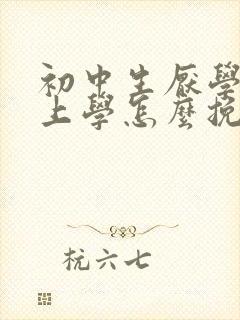 初中生厭學
上學怎麼挽
杭六七